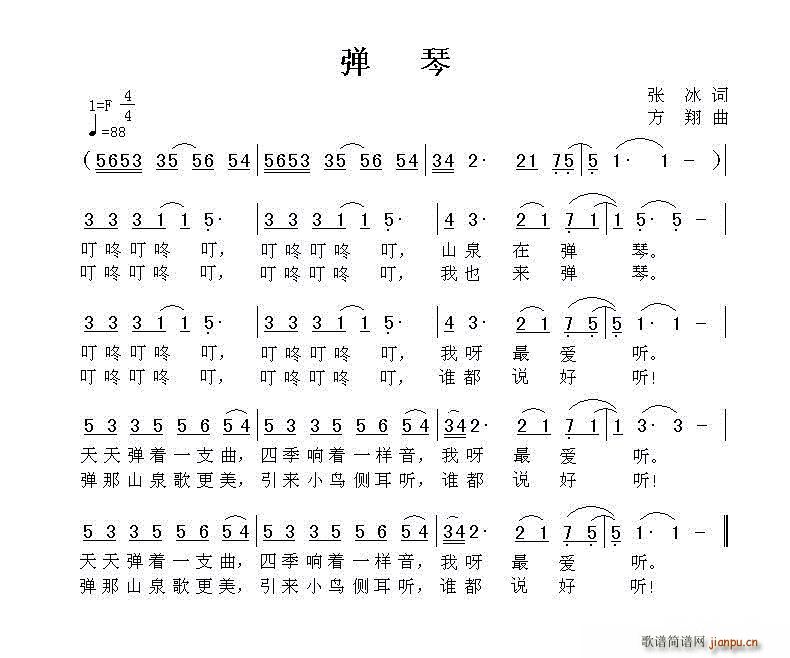 弹 琴
1=F 4/4
♩=88
张 冰 词
方 翔 曲
( 5653 35 56 54 | 5653 35 56 54 | 34 2· 21 75 | 5 1· 1 - ) |
3 3 3 1 1 5· | 3 3 3 1 1 5· | 4 3· 2 1 7 1 | 1 5· 5 - |
叮咚叮咚 叮， 叮咚叮咚 叮， 山泉 在 弹 琴。
叮咚叮咚 叮， 叮咚叮咚 叮， 我也 来 弹 琴。
3 3 3 1 1 5· | 3 3 3 1 1 5· | 4 3· 2 1 7 5 | 5 1· 1 - |
叮咚叮咚 叮， 叮咚叮咚 叮， 我呀 最 爱 听。
叮咚叮咚 叮， 叮咚叮咚 叮， 谁都 说 好 听!
5 3 3 5 5 6 5 4 | 5 3 3 5 5 6 5 4 | 34 2· 2 1 7 1 | 1 3· 3 - |
天天弹着一支曲，四季响着一样音，我呀 最 爱 听。
弹那山泉歌更美，引来小鸟侧耳听，谁都 说 好 听!
5 3 3 5 5 6 5 4 | 5 3 3 5 5 6 5 4 | 34 2· 2 1 7 5 | 5 1· 1 - ‖
天天弹着一支曲，四季响着一样音，我呀 最 爱 听。
弹那山泉歌更美，引来小鸟侧耳听，谁都 说 好 听!
歌谱简谱网 jianpu.cn